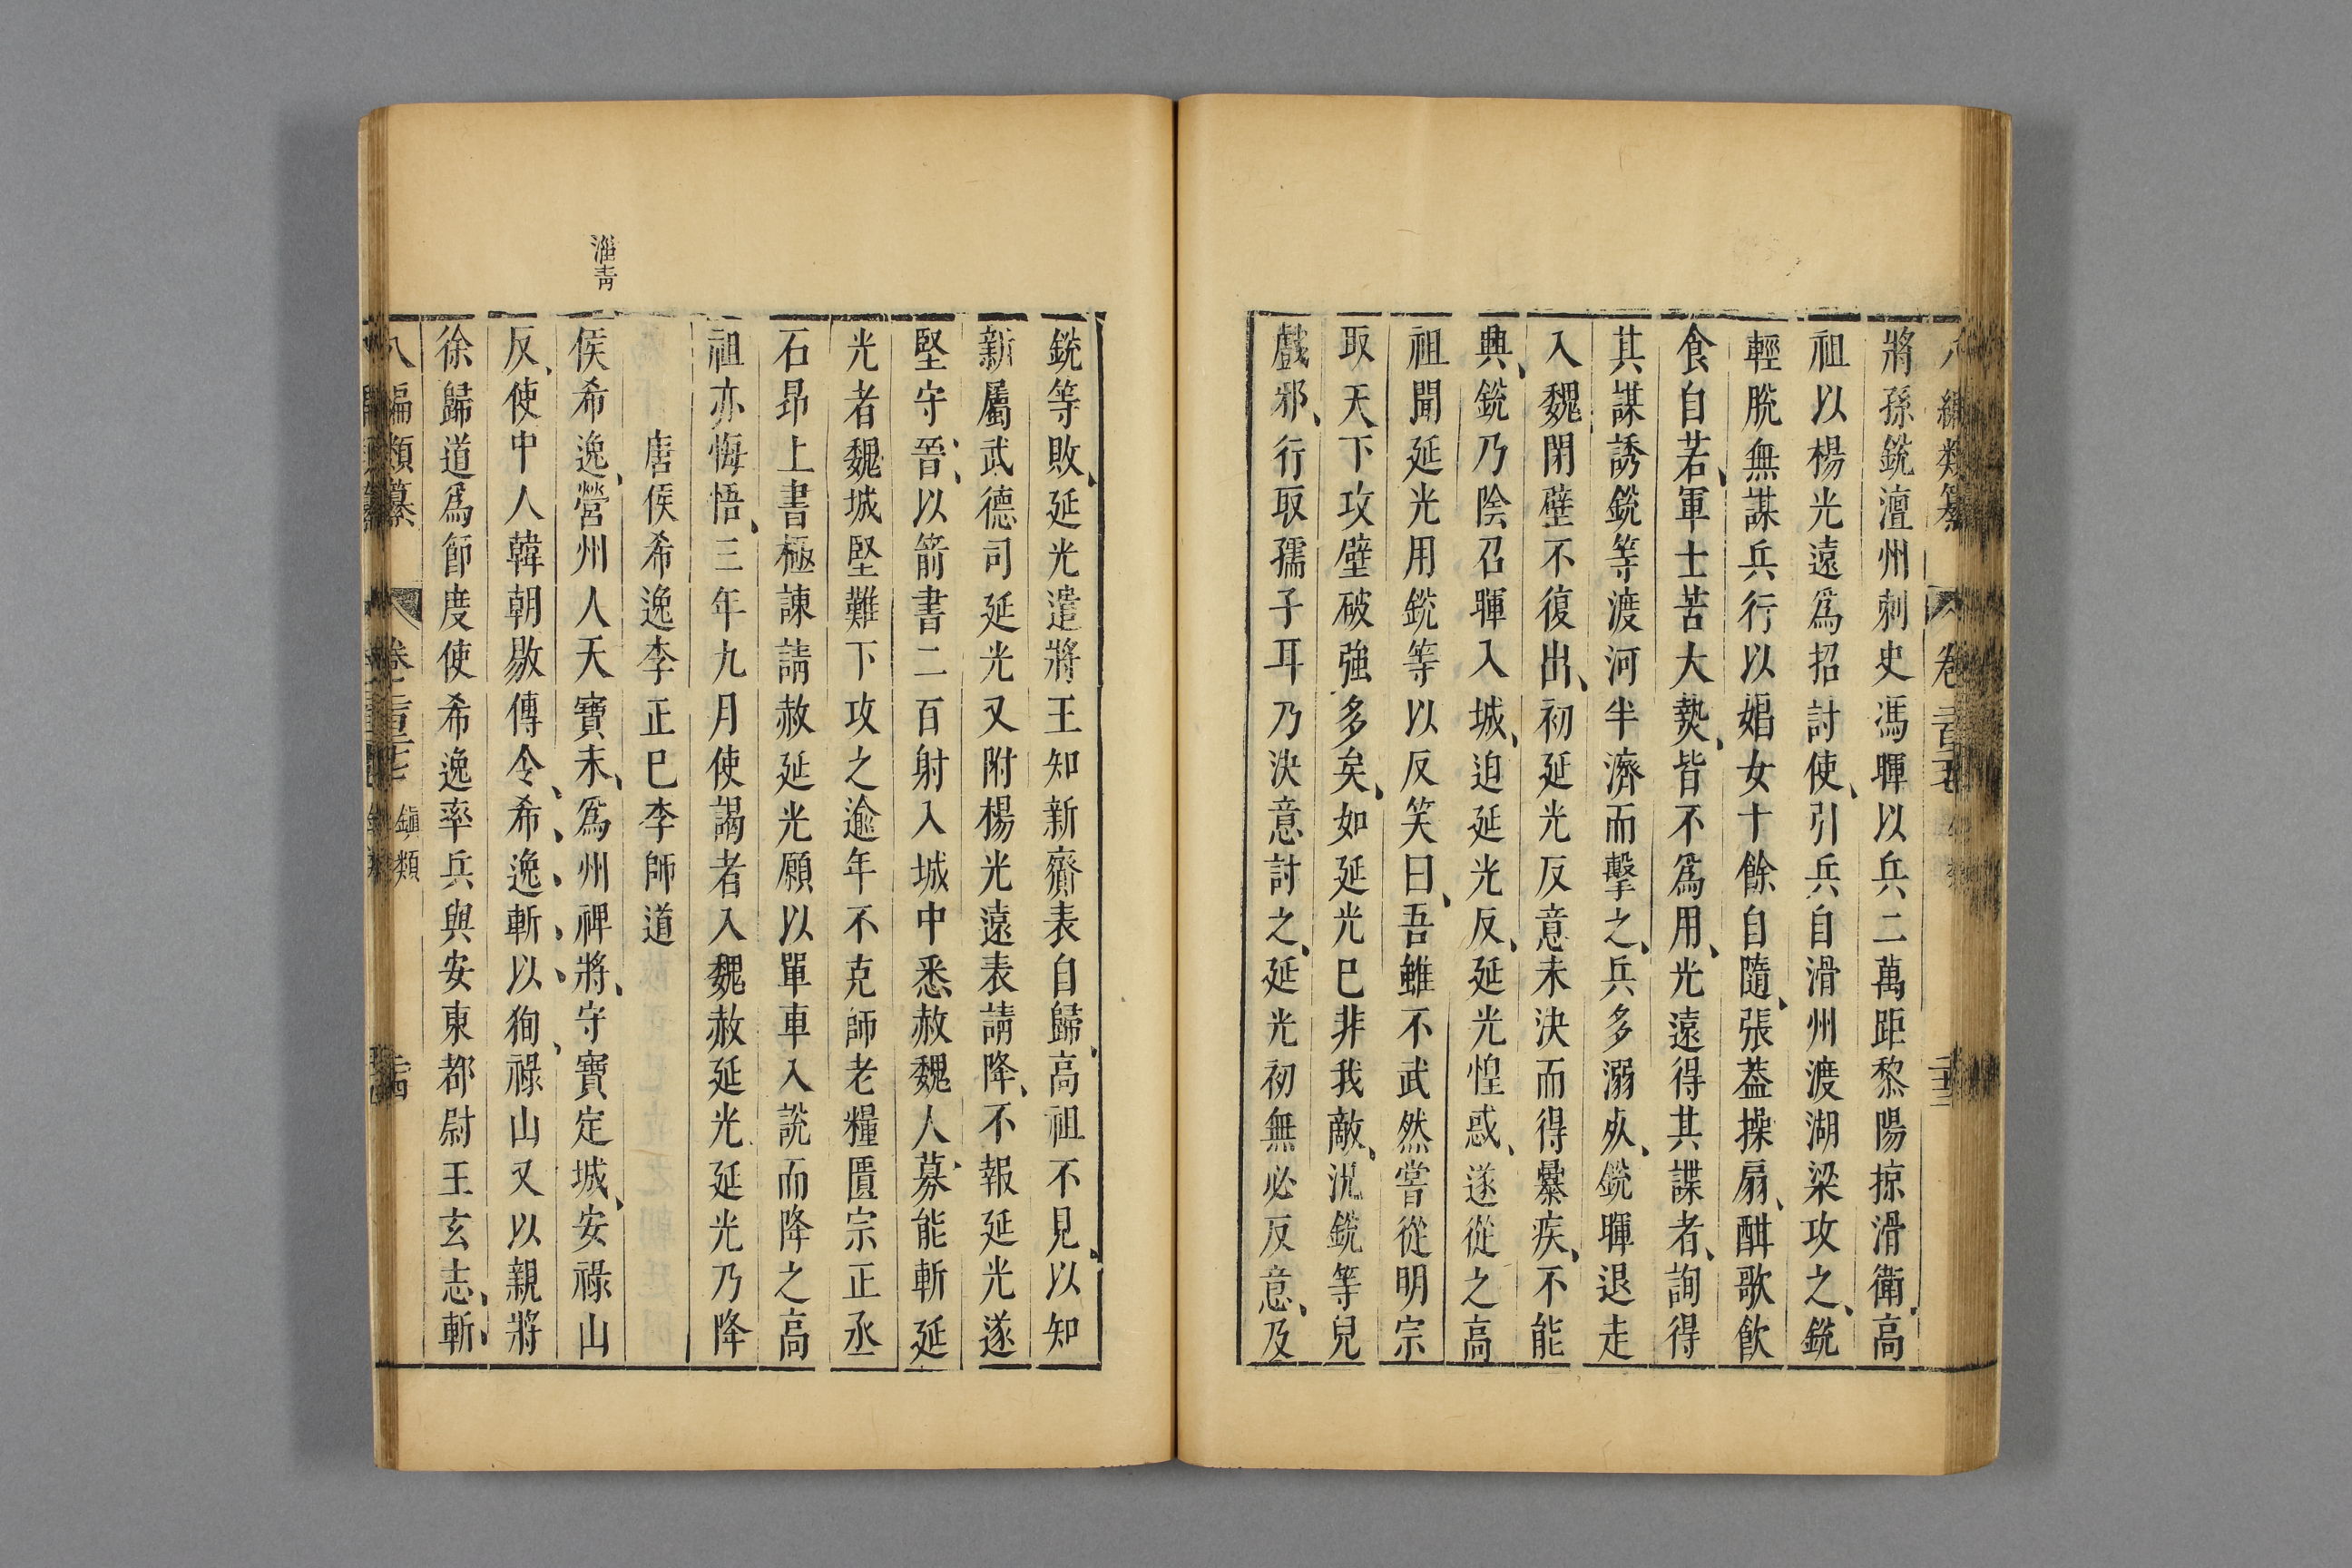 將孫銳澶州刺史馮暉以兵二萬距黎陽掠滑衛高
祖以楊光遠爲招討使引兵自滑州渡湖梁攻之銳
輕脫無謀兵行以娼女十餘自隨張蓋操扇酣歌飲
食自若軍士苦大𤍠皆不爲用光遠得其諜者詢得
其謀誘銳等渡河半濟而擊之兵多溺死銳暉退走
入魏閉壁不復出初延光反意未決而得暴疾不能
興銳乃陰召暉入城迫延光反延光惶惑遂從之高
祖聞延光用銳等以反笑曰吾雖不武然嘗從明宗
取天下攻壁破強多矣如延光已非我敵況銳等兒
戲邪行取孺子耳乃決意討之延光初無必反意及
銳等敗延光遣將王知新齎表自歸高祖不見以知
新屬武德司延光又附楊光遠表請降不報延光遂
堅守晉以箭書二百射入城中悉赦魏人募能斬延
光者魏城堅難下攻之逾年不克師老糧匱宗正丞
石昂上書極諫請赦延光願以單車入說而降之高
祖亦悔悟三年九月使謁者入魏赦延光延光乃降
唐侯希逸李正巳李師道
淄青
侯希逸營州人天寶末爲州裨將守寶定城安祿山
反使中人韓朝敭傳令希逸斬以狥祿山又以親將
徐歸道爲節度使希逸率兵與安東都尉王玄志斬
八編類纂 鎮類